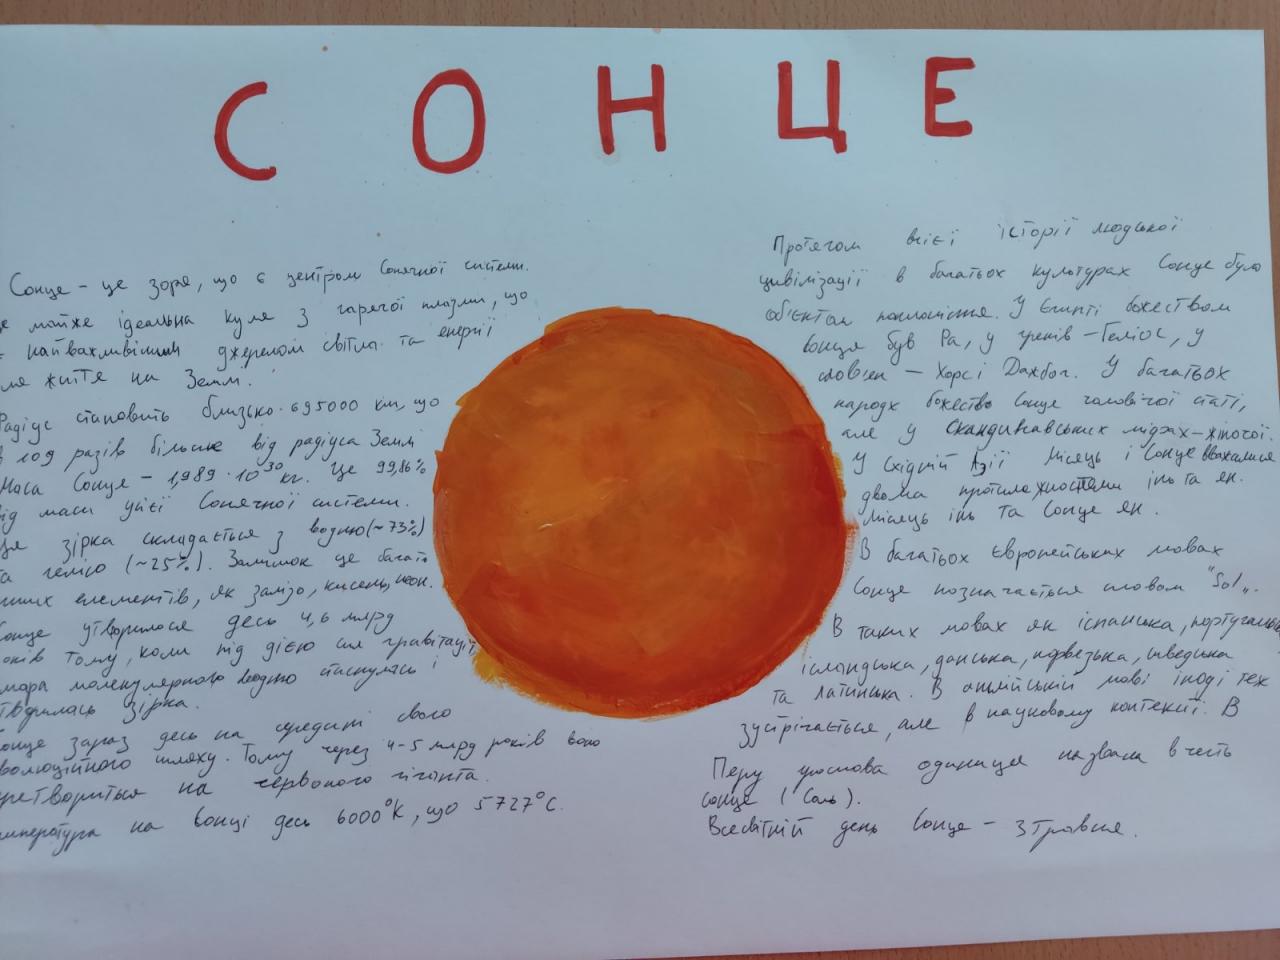 СОНЦЕ
Сонце - це зоря, що є центром Сонячної системи.
це майже ідеальна куля з гарячої плазми, що
є найважливішим джерелом світла та енергії
для життя на Землі.
Радіус становить близько 695000 км, що
в 109 разів більше від радіуса Землі
Маса Сонце - 1,989·10³⁰ кг. Це 99,86%
від маси усієї Сонячної системи.
Ця зірка складається з водню (~73%)
та гелію (~25%). Залишок це багато
інших елементів, як залізо, кисень, неон.
Сонце утворилося десь 4,6 млрд
років тому, коли під дією сил гравітації
хмара молекулярного водню стиснулась і
утворилась зірка.
Сонце зараз десь на середині свого
еволюційного шляху. Тому через 4-5 млрд років воно
перетвориться на червоного гіганта.
температура на Сонці десь 6000°К, що 5727°С.
Протягом всієї історії людської
цивілізації в багатьох культурах Сонце було
об'єктом поклоніння. У Єгипті божеством
Сонця був Ра, у греків - Геліос, у
слов'ян - Хорс і Дажбог. У багатьох
народх божество Сонце чоловічої статі,
але у Скандинавських мідрах - жіночої.
У Східній Азії Місяць і Сонце вважалися
двома протилежностями інь та ян.
Місяць інь та Сонце ян.
В багатьох Європейських мовах
Сонце позначається словом "Sol".
В таких мовах як іспанська, португальська
ісландська, данська, норвезька, шведська
та латинська. В англійській мові іноді теж
зустрічається, але в науковому контексті. В
Перу грошова одиниця названа в честь
сонце (Соль).
Всесвітній день Сонце - 3 травня.